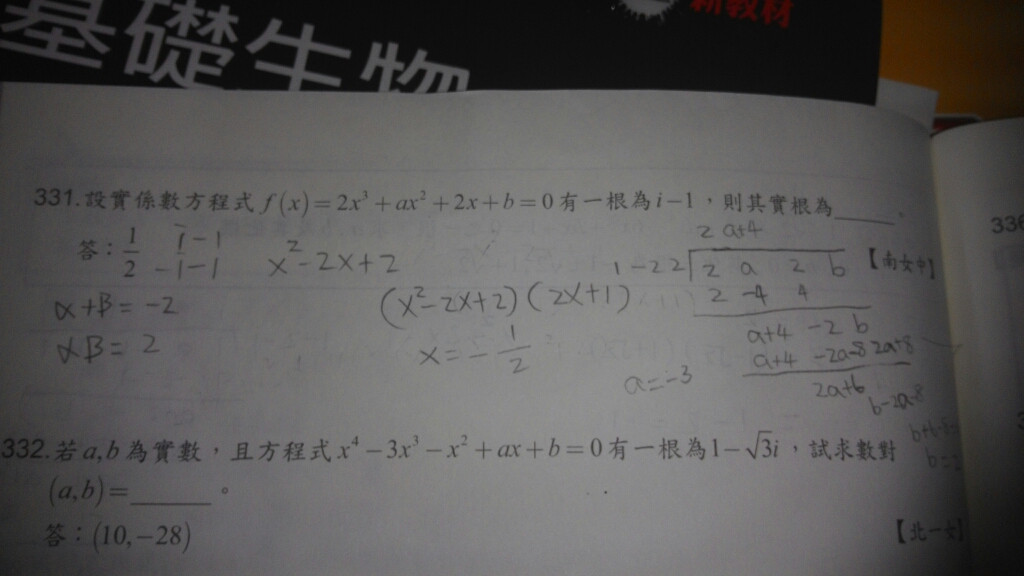 新教材
基礎生物
331.設實係數方程式 f(x)=2x³+ax²+2x+b=0有一根為i-1，則其實根為______。
答：1/2
【南女中】
i-1
-i-1
α+β=-2
αβ=2
x²-2x+2
(x²-2x+2)(2x+1)
x=-1/2
2 a+4
1-2 2 2 a 2 b
2 -4 4
a+4 -2 b
a+4 -2a-8 2a+8
2a+6
b-2a-8
a=-3
332.若a,b為實數，且方程式x⁴-3x³-x²+ax+b=0有一根為1-√3i，試求數對
(a,b)=______。
答：(10,-28)
【北一女】